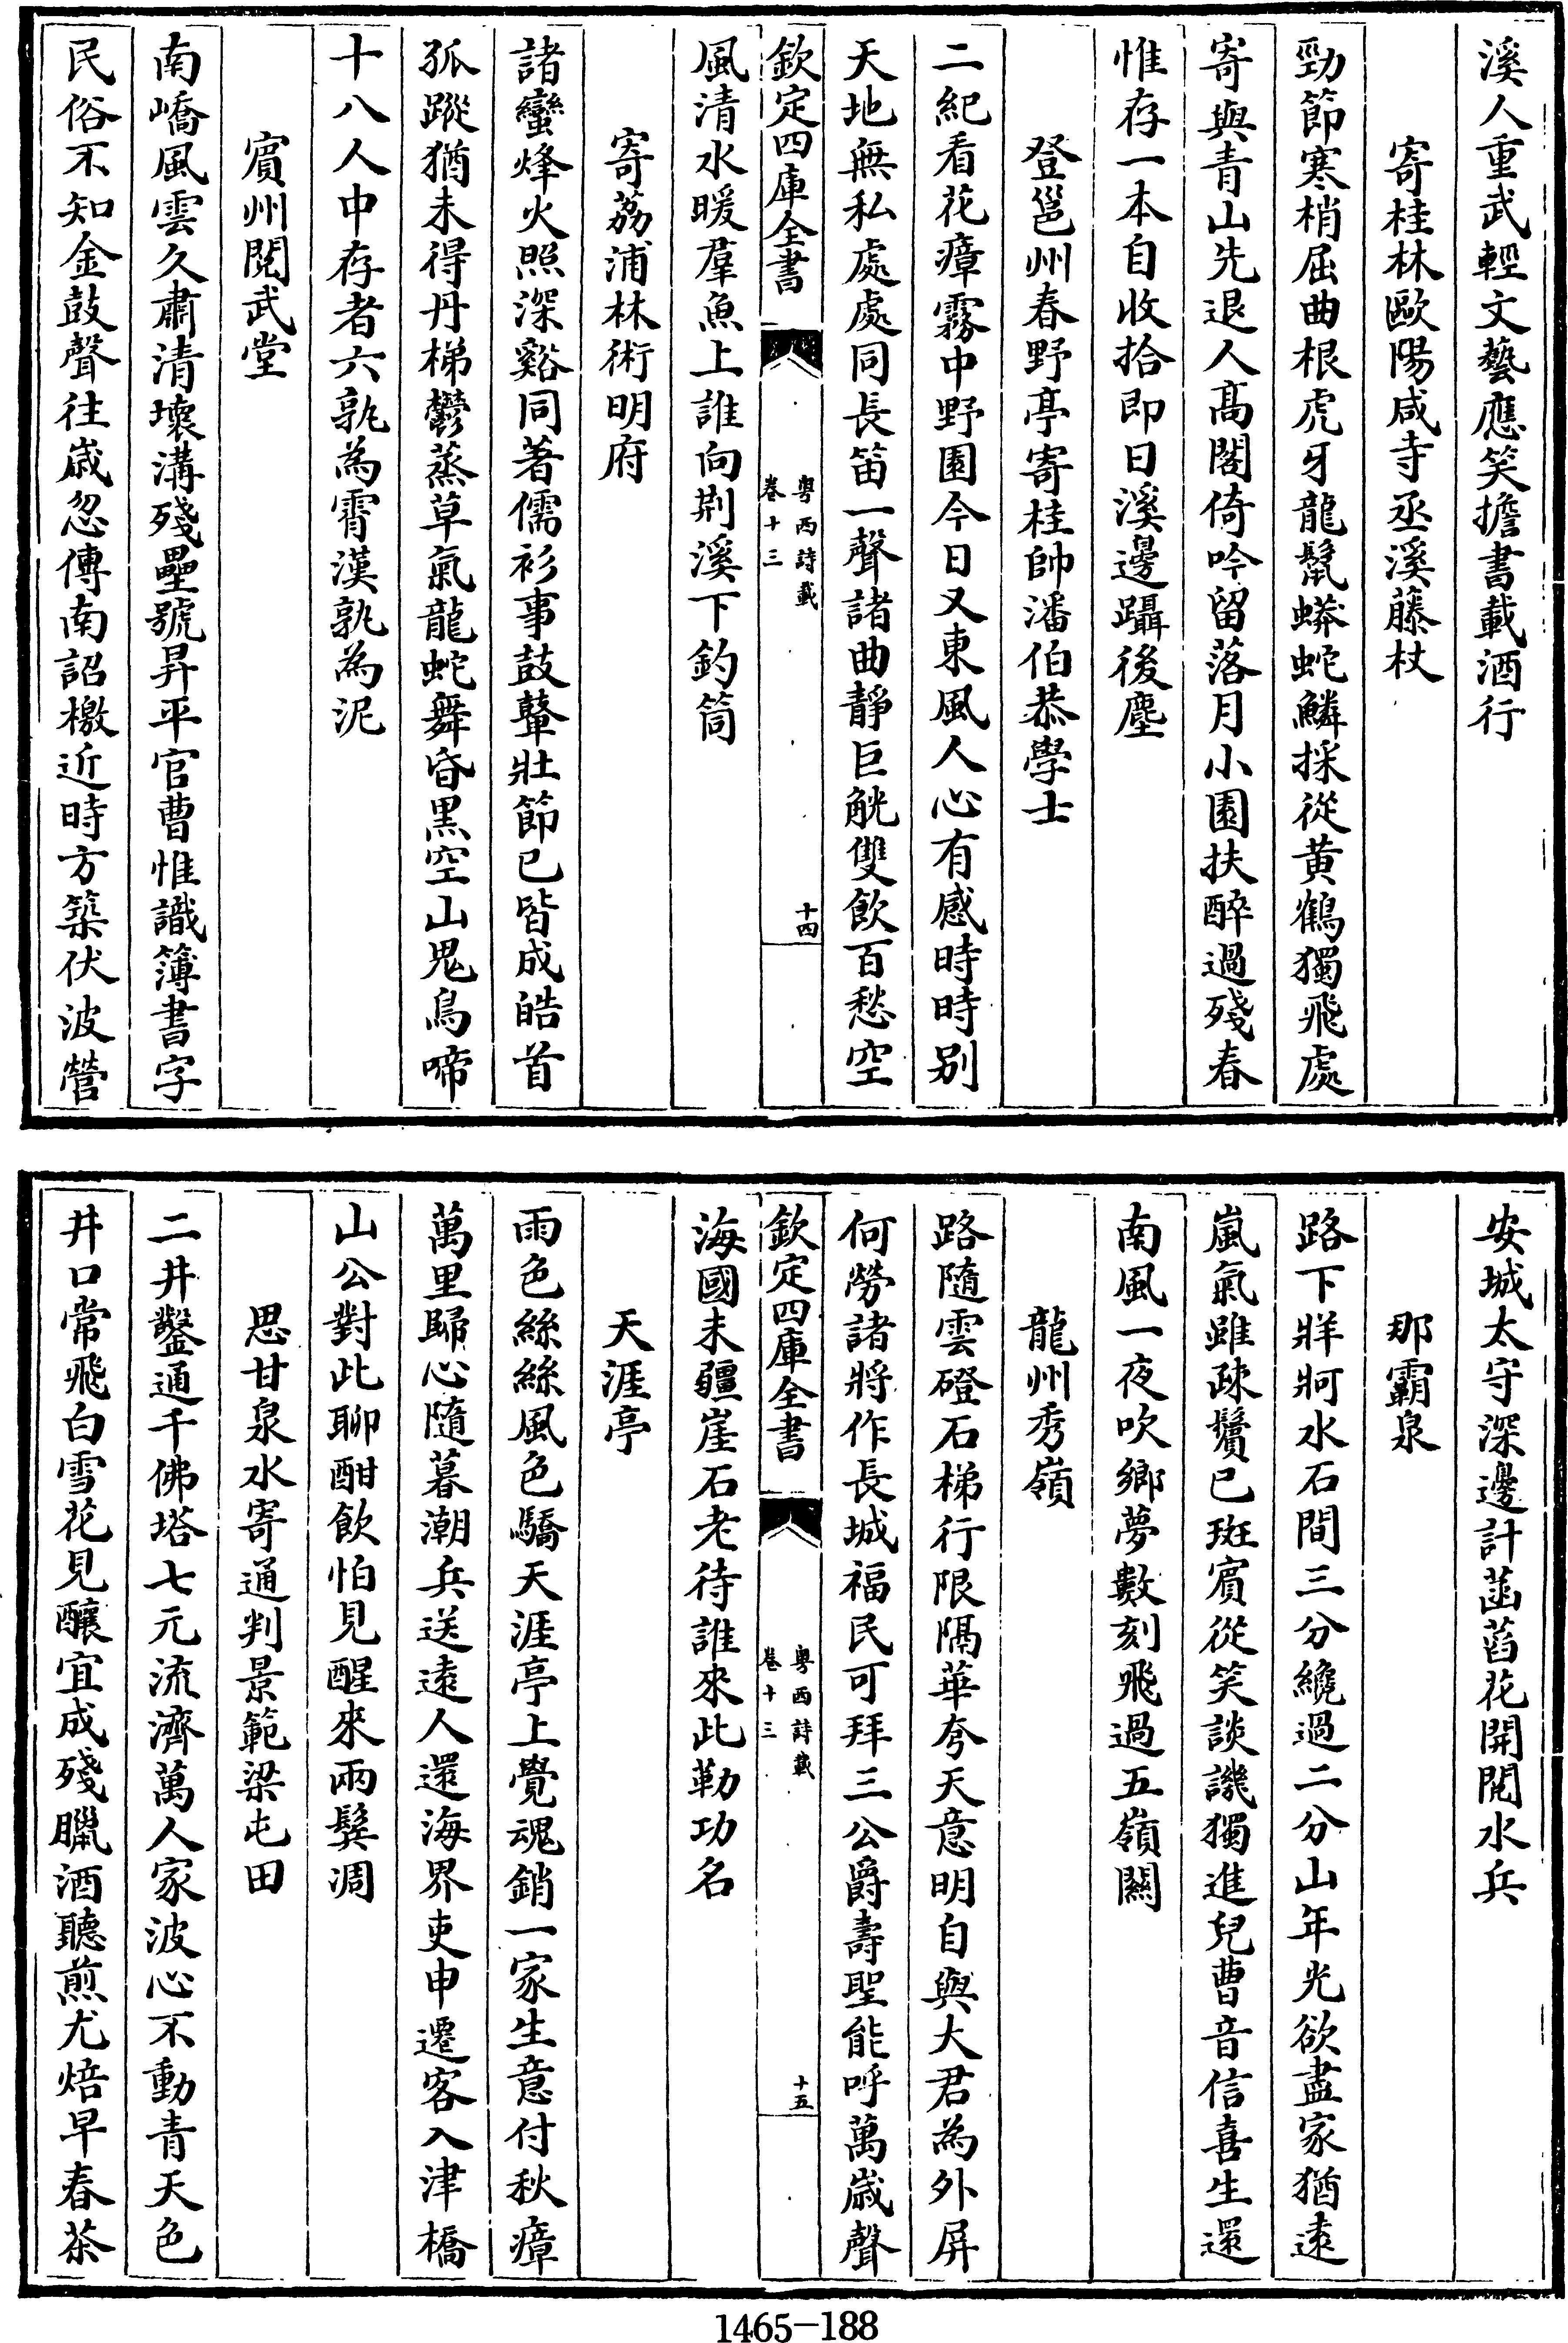 溪人重武輕文藝應笑擔書載酒行
寄桂林歐陽咸寺丞溪藤杖
勁節寒梢屈曲根虎牙龍鬛蟒蛇鱗採從黄鶴獨飛處
寄與青山先退人髙閣倚吟留落月小園扶醉過殘春
惟存一本自收拾即日溪邊躡後塵
登邕州春野亭寄桂帥潘伯恭學士
二紀看花瘴霧中野園今日又東風人心有感時時别
天地無私處處同長笛一聲諸曲靜巨觥雙飲百愁空
欽定四庫全書
粤西詩載
卷十三
十四
風清水暖羣魚上誰向荆溪下釣筒
寄荔浦林術明府
諸蠻烽火照深谿同著儒衫事鼓鼙壯節已皆成皓首
孤蹤猶未得丹梯鬱蒸草氣龍蛇舞昏黒空山鬼鳥啼
十八人中存者六孰為霄漢孰為泥
賔州閱武堂
南嶠風雲久肅清壞溝殘壘號昇平官曹惟識簿書字
民俗不知金鼓聲往歲忽傳南詔檄近時方築伏波營
安城太守深邊計菡萏花開閱水兵
那霸泉
路下牂牁水石間三分纔過二分山年光欲盡家猶逺
嵐氣雖疎鬢已斑賔從笑談譏獨進兒曹音信喜生還
南風一夜吹鄉夢數刻飛過五嶺關
龍州秀嶺
路隨雲磴石梯行限隔華夸天意明自與大君為外屏
何勞諸將作長城福民可拜三公爵壽聖能呼萬歲聲
欽定四庫全書
粤西詩載
卷十三
十五
海國未疆崖石老待誰來此勒功名
天涯亭
雨色絲絲風色驕天涯亭上覺魂銷一家生意付秋瘴
萬里歸心隨暮潮兵送逺人還海界吏申遷客入津橋
山公對此聊酣飲怕見醒來兩鬂凋
思甘泉水寄通判景範梁屯田
二井鑿通千佛塔七元流濟萬人家波心不動青天色
井口常飛白雪花見釀宜成殘臘酒聽煎尤焙早春茶
1465-188